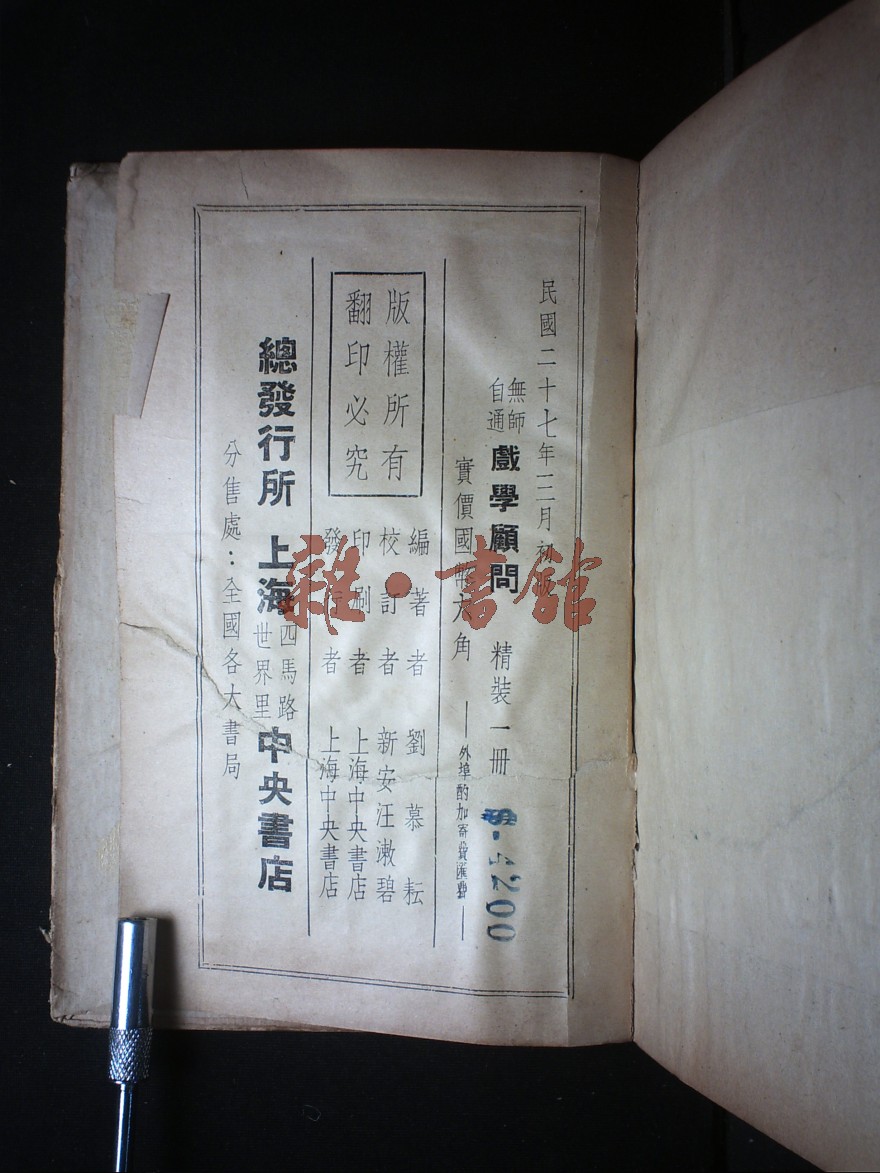 民國二十七年三月初
無師
自通
戲學顧問 精裝一冊
實價國幣六角
——外埠酌加寄費匯費——
版權所有
翻印必究
編著者 劉慕耘
校訂者 新安汪漱碧
印刷者 上海中央書店
發行者 上海中央書店
總發行所 上海
四馬路
世界里
中央書店
分售處：全國各大書局
雜·書館